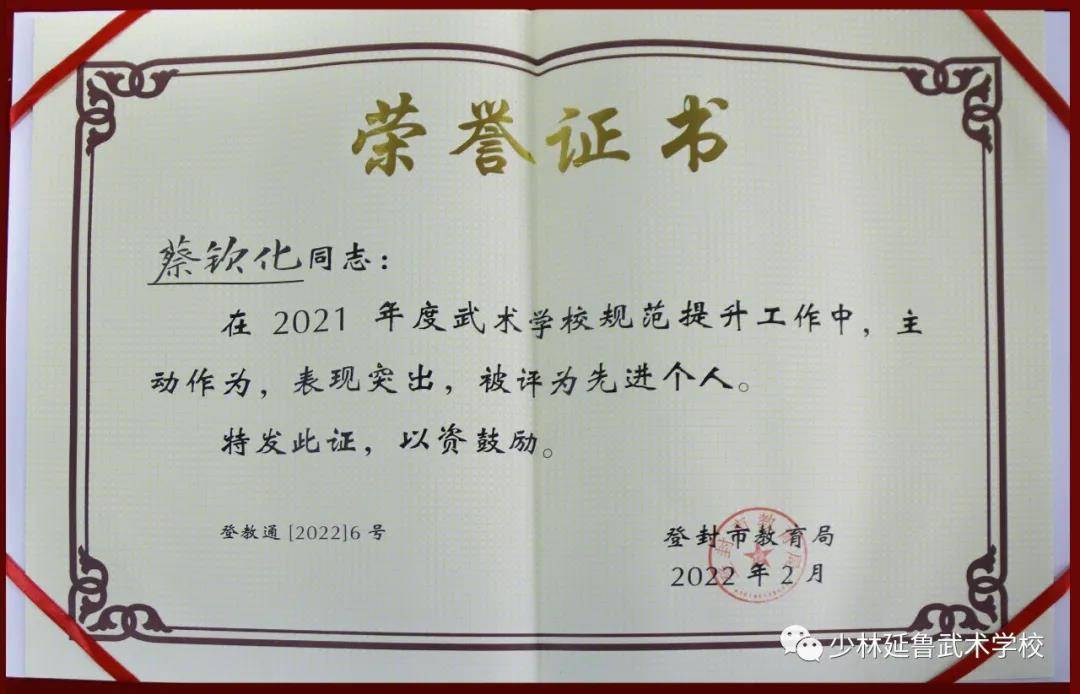 荣誉证书
蔡钦化同志：
在 2021 年度武术学校规范提升工作中，主
动作为，表现突出，被评为先进个人。
特发此证，以资鼓励。
登教通 [2022]6 号
登封市教育局
2022 年 2 月
登封市教育局
少林延鲁武术学校